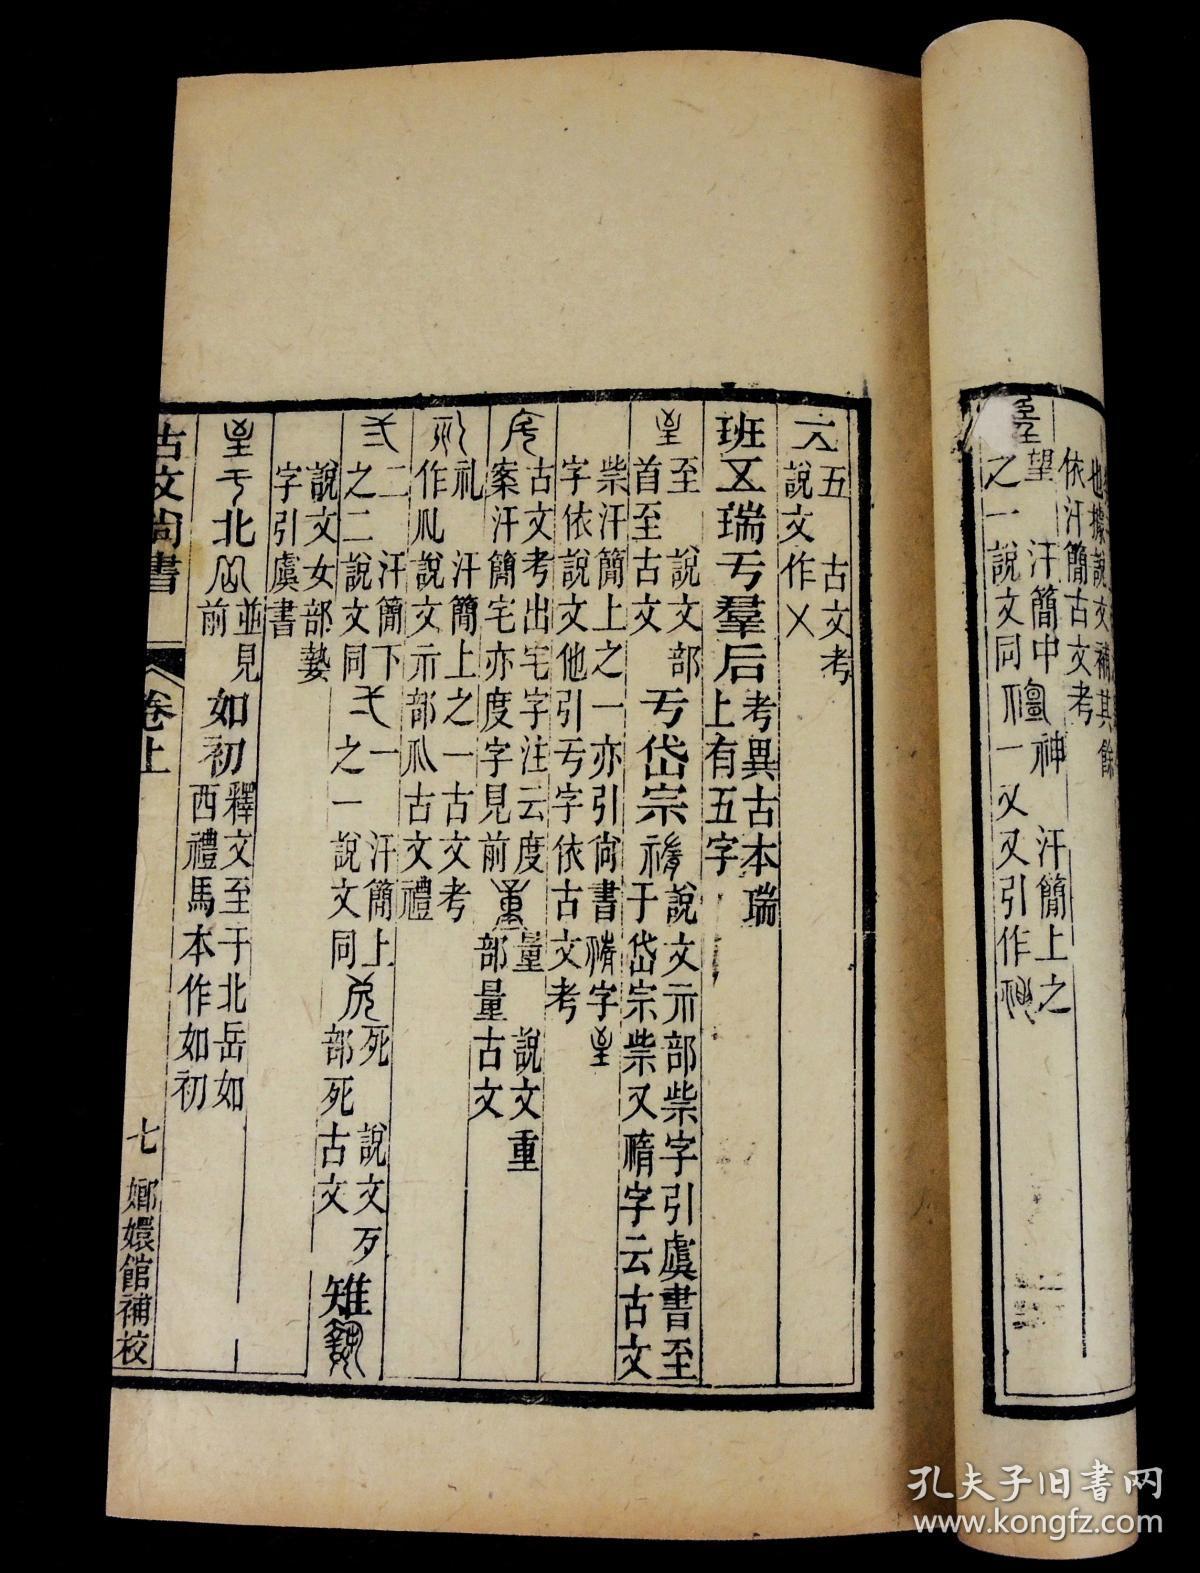 也據說文補其餘
依汗簡古文考
望 汗簡中 神 汗簡上之
之一說文同 一又又引作
五 古文考
說文作㐅
班五瑞亏羣后 考異古本瑞
上有五字
至 說文部 亏岱宗 說文示部祡字引虞書至
首至古文 于岱宗祡又 字云古文
祡汗簡上之一亦引尙書 字
字依說文他引亏字依古文考
古文考出宅字注云度 量 說文重
案汗簡宅亦度字見前 部量古文
礼 汗簡上之一古文考
作 說文示部 古文禮
二 汗簡下 弌一 汗簡上 死 說文歹
之二說文同 之一說文同 部死古文 雉
說文女部 
字引虞書
北 並見 如初 釋文至于北岳如
前 西禮馬本作如初
古文尙書 卷上 七 嫏嬛館補校
孔夫子旧书网
www.kongfz.com